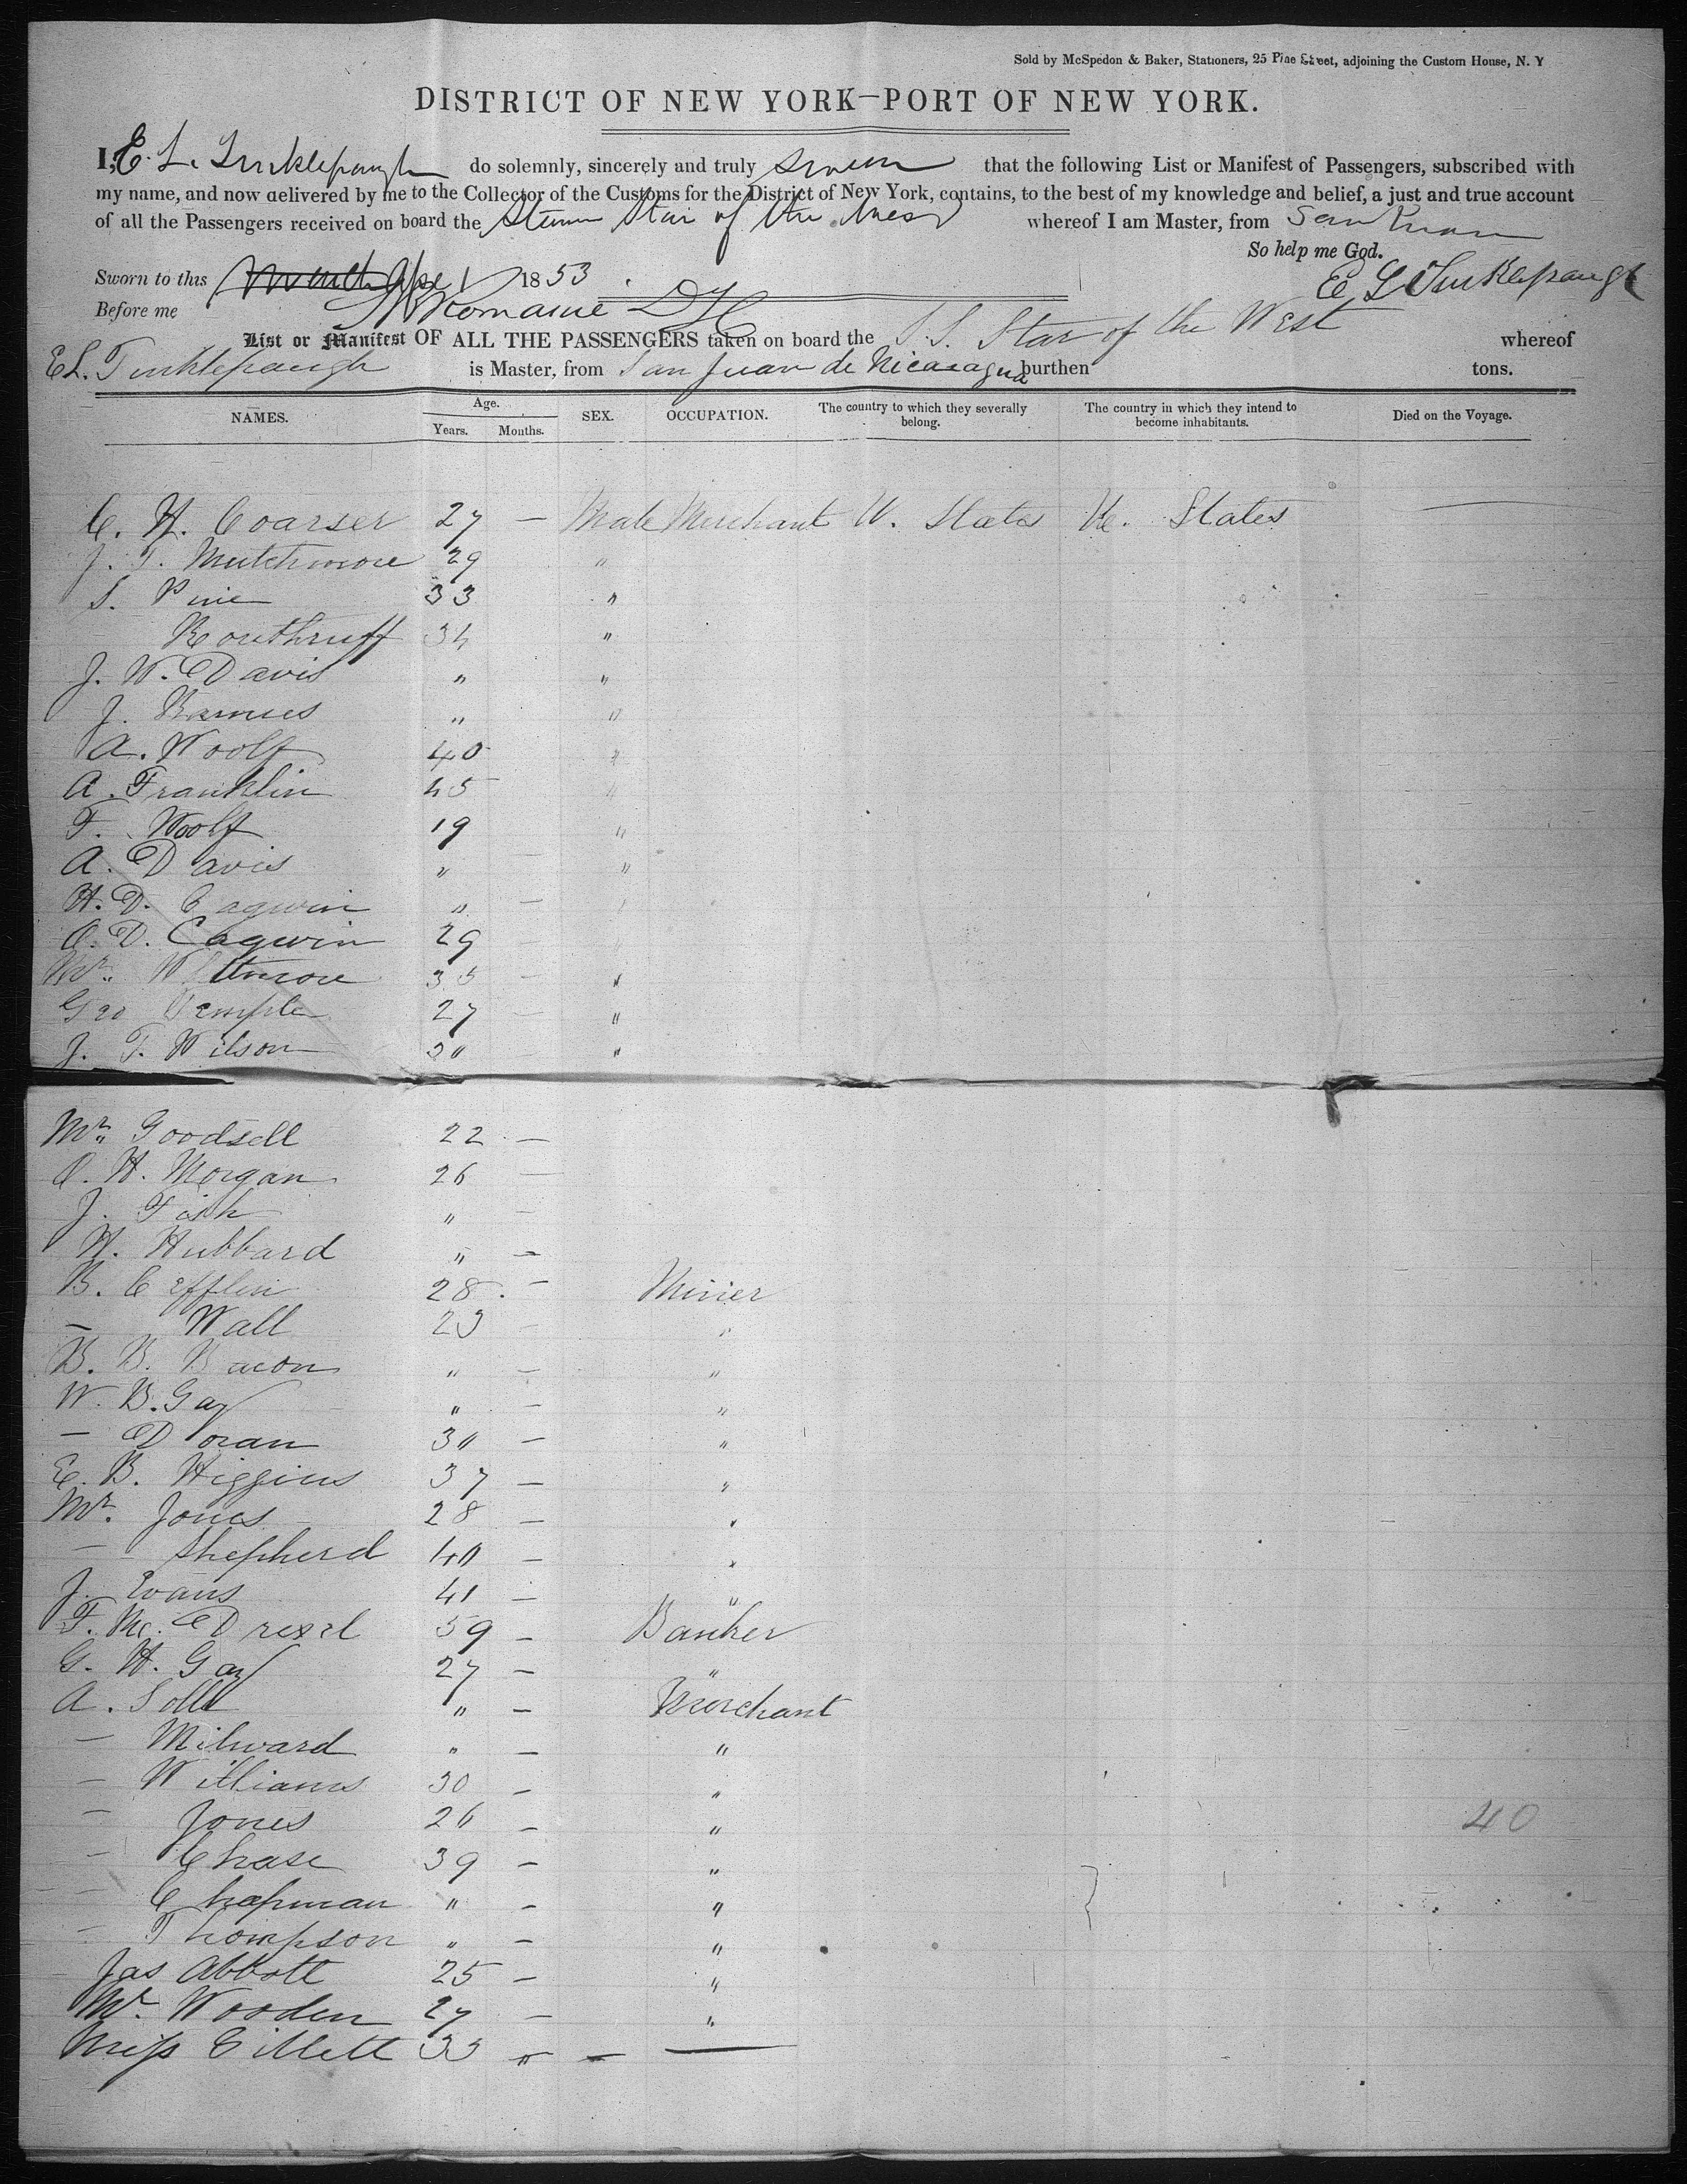 Sold by McSpedon & Baker, Stationers, 25 Pine Street, adjoining the Custom House, N. Y
DISTRICT OF NEW YORK—PORT OF NEW YORK.
I, E. L. Tinklepaugh do solemnly, sincerely and truly swear that the following List or Manifest of Passengers, subscribed with
my name, and now delivered by me to the Collector of the Customs for the District of New York, contains, to the best of my knowledge and belief, a just and true account
of all the Passengers received on board the Steam Star of the West whereof I am Master, from San Juan
So help me God.
Sworn to this 1853. E L Tinklepaugh
Before me Romaine
List or Manifest OF ALL THE PASSENGERS taken on board the S. S. Star of the West whereof
E L. Tinklepaugh is Master, from San Juan de Nicaragua burthen tons.
NAMES. Age. Years. Months. SEX. OCCUPATION. The country to which they severally belong. The country in which they intend to become inhabitants. Died on the Voyage.
C. H. Coarser 27 — Male Merchant U. States U. States —
J. T. Mutchmore 29 "
S. Pine 33 "
Routhruff 34 "
J. W. Davis " "
J. Barnes " "
A. Woolf 40 "
A. Franklin 45 "
F. Woolf 19 "
A. Davis " "
H. D. Cagwin " "
O. D. Cagwin 29 "
Mr. 35 "
Geo Temple 27 — "
J. T. Wilson 30 — "
Mr. Goodsell 22 —
O. H. Morgan 26 —
J. Fish " —
H. Hubbard " —
B. Cefflin 28 — Miner
— Wall 23 — "
B. B. Bacon " — "
W. B. Gay " — "
— Doran 30 — "
E. B. Higgins 37 — "
Mr. Jones 28 — "
— Shepherd 40 — "
J. Evans 41 — "
F. M. Drexel 59 — Banker
G. H. Gay 27 — "
A. " — Merchant
— Milward " — "
— Williams 30 — "
— Jones 26 — " 40
— Chase 39 — "
— Chapman " — "
— Thompson " — "
Jas Abbott 25 — "
Mr. Wooden 27 — "
Miss Gillett 33 " — —